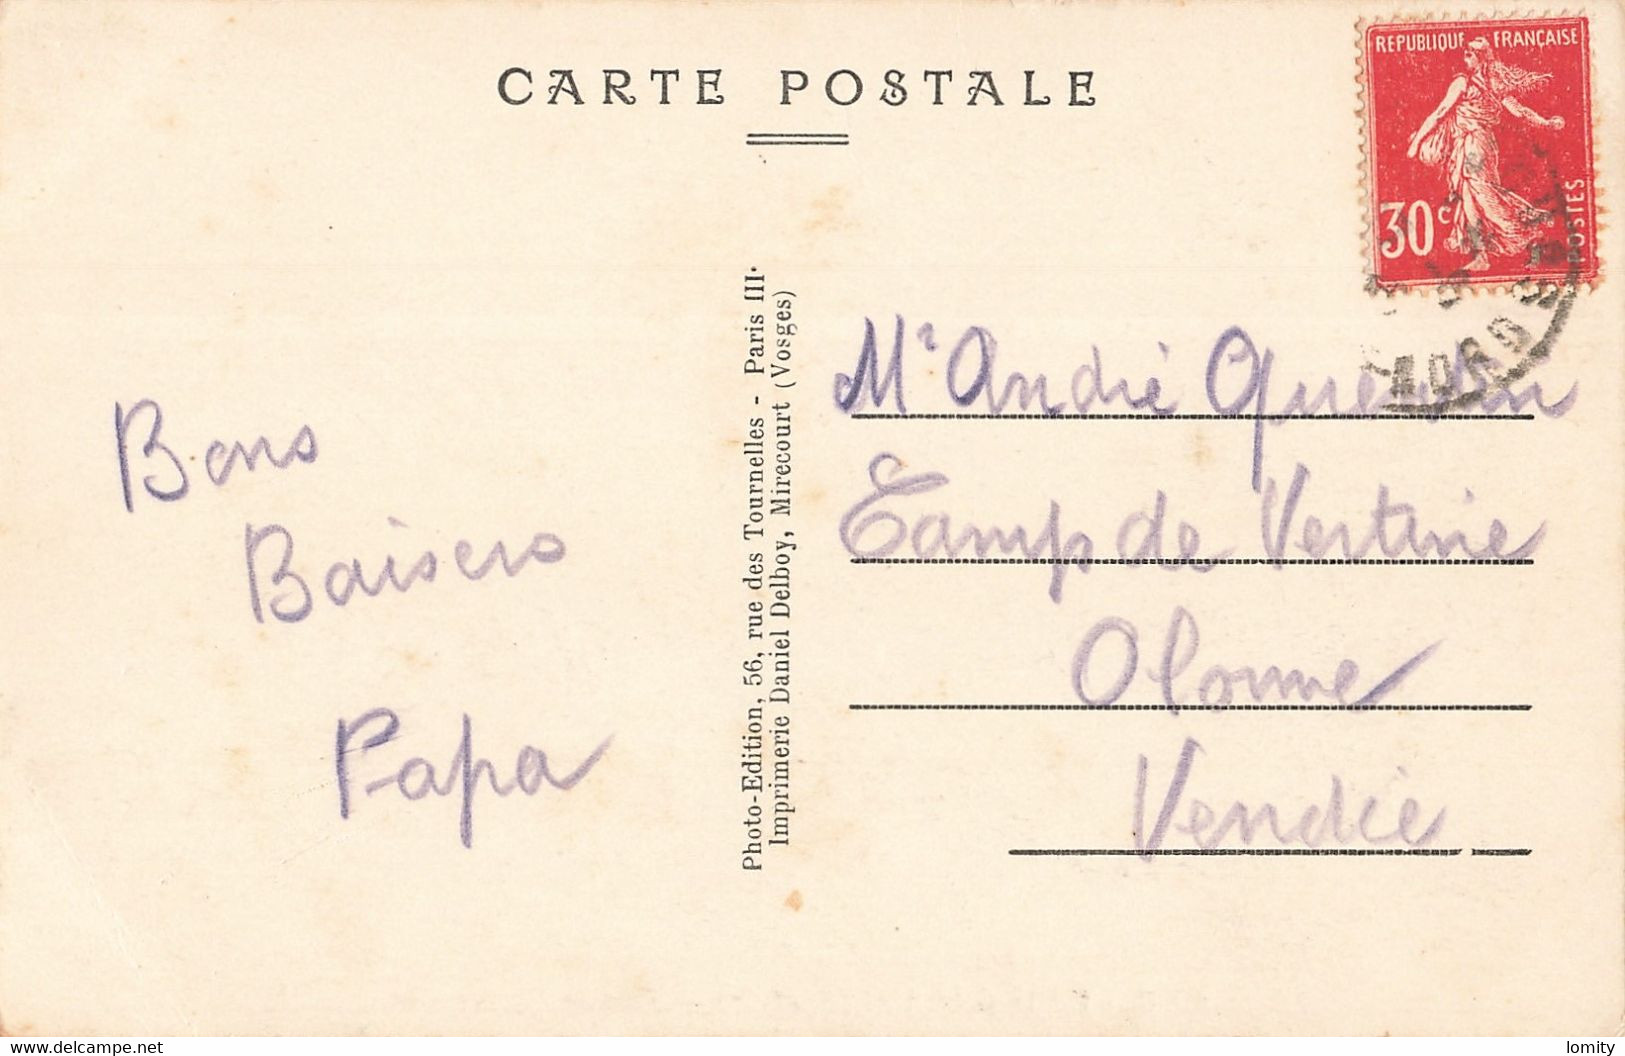 CARTE POSTALE
REPUBLIQUE FRANÇAISE
30c
POSTES
Bons
Baisers
Papa
Photo-Edition, 56, rue des Tournelles - Paris III·
Imprimerie Daniel Delboy, Mirecourt (Vosges)
Mr André
Camp de Vertine
Olonne
Vendée
delcampe.net
lomity